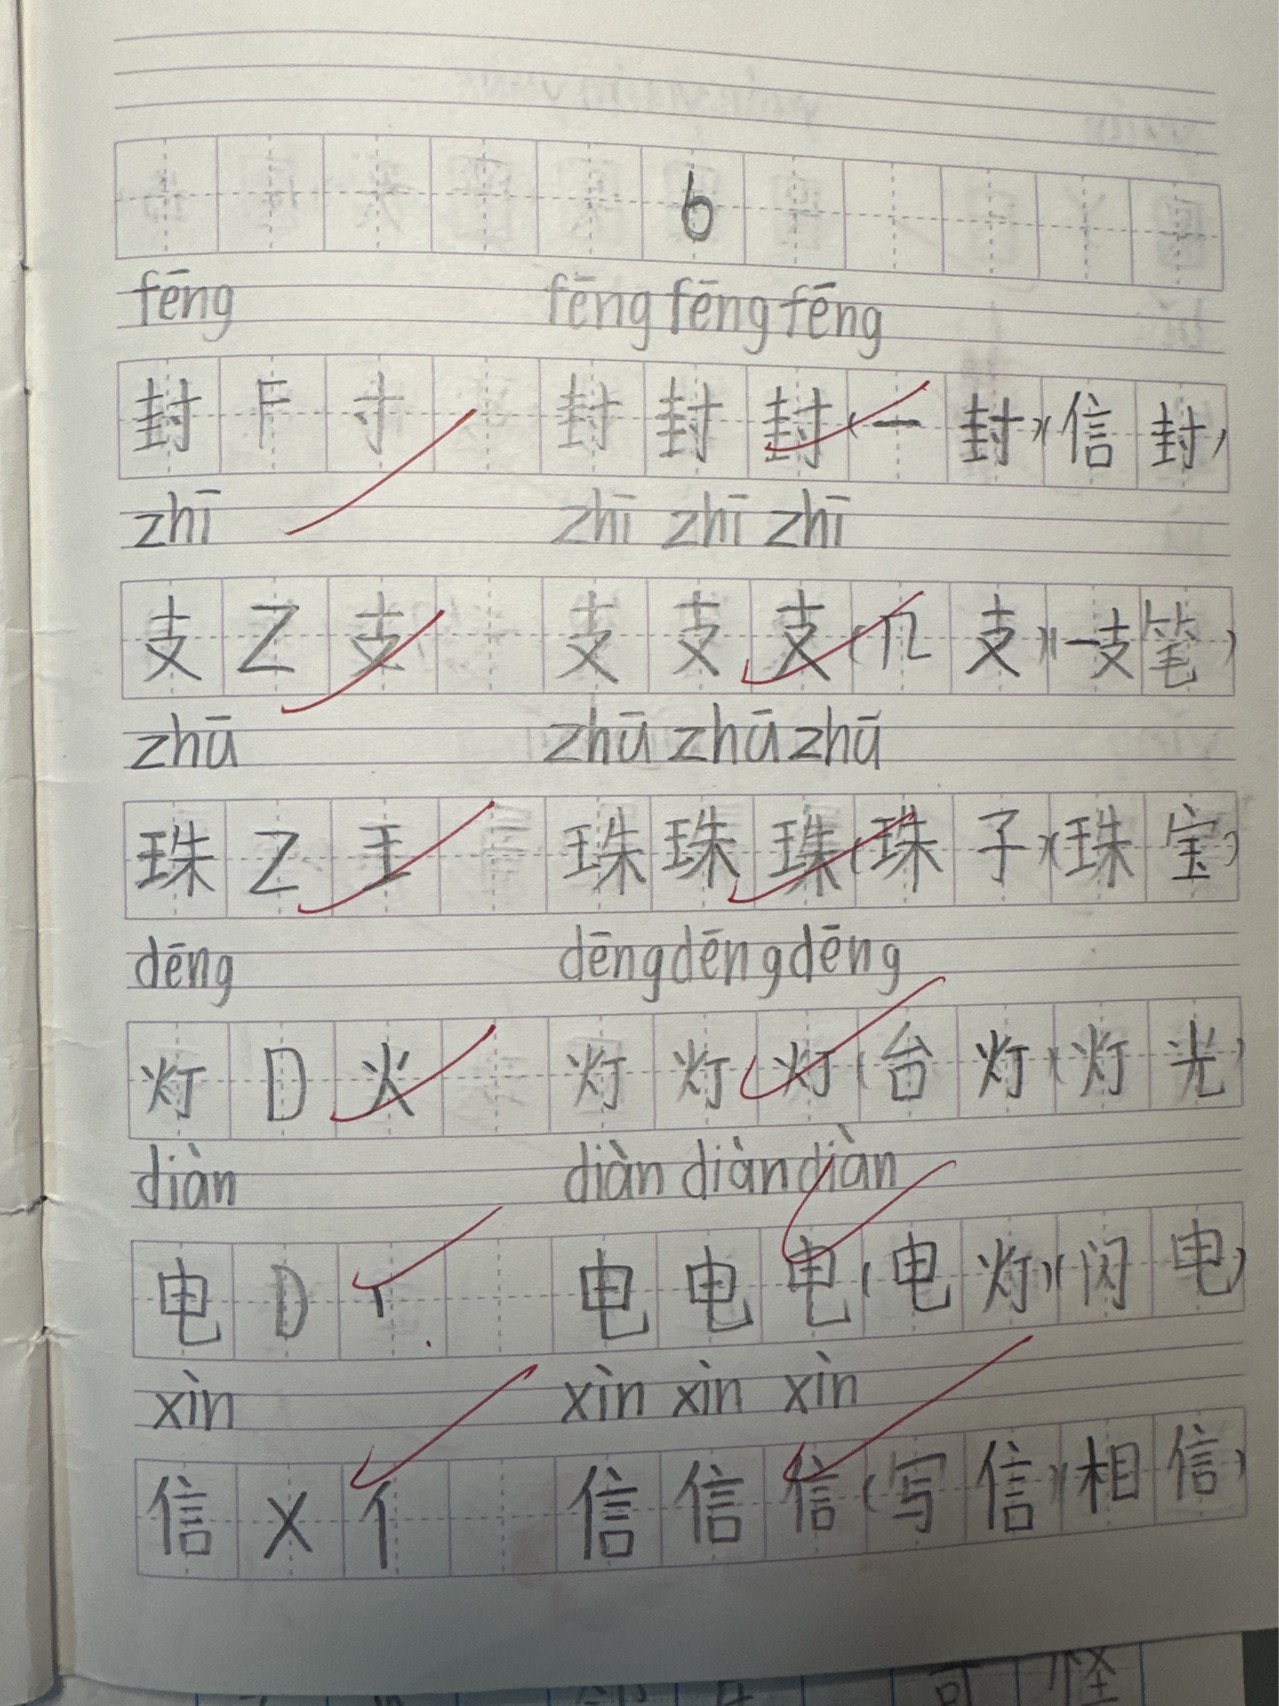 6
fēng fēng fēng fēng
封 F 寸 封 封 封 (一 封)(信 封)
zhī zhī zhī zhī
支 Z 支 支 支 支 (几 支)(一支笔)
zhū zhū zhū zhū
珠 Z 王 珠 珠 珠 (珠 子)(珠 宝)
dēng dēng dēng dēng
灯 D 火 灯 灯 灯 (台 灯)(灯 光)
diàn diàn diàn diàn
电 D 电 电 电 (电 灯)(闪 电)
xìn xìn xìn xìn
信 X 亻 信 信 信 (写 信)(相 信)